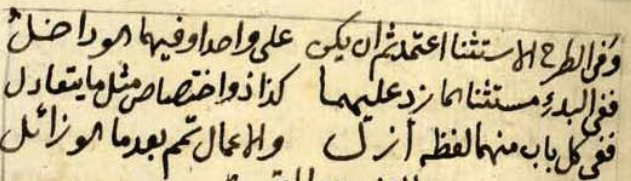 وفى الطرح الاستثنا اعتمد ثم ان يكن على واحد او فيهما الو داخل
ففى البدء مستثنا لما زد عليهما كذا ذو اختصاص مثل ما يتعادل
ففى كل باب منهما لفظه أزل والاعمال تمم بعد ما الو زائل